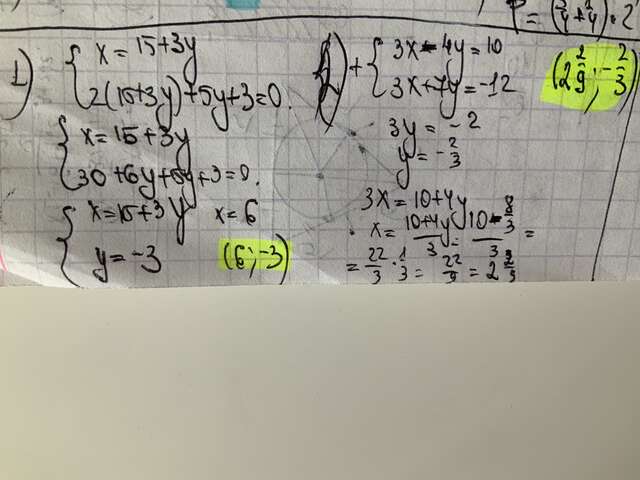 P = (3/4 + 2/4) · 2
1) { x = 15+3y
2(15+3y)+5y+3=0.
{ x = 15+3y
30+6y+5y+3=0.
{ x=15+3y x=6
y = -3 (6; -3)
) + { 3x-4y=10 (2 2/9; -2/3)
3x+7y=-12
3y = -2
y = -2/3
3x = 10+4y
x = 10+4y/3 = 10-8/3 / 3 =
= 22/3 · 1/3 = 22/9 = 2 2/9